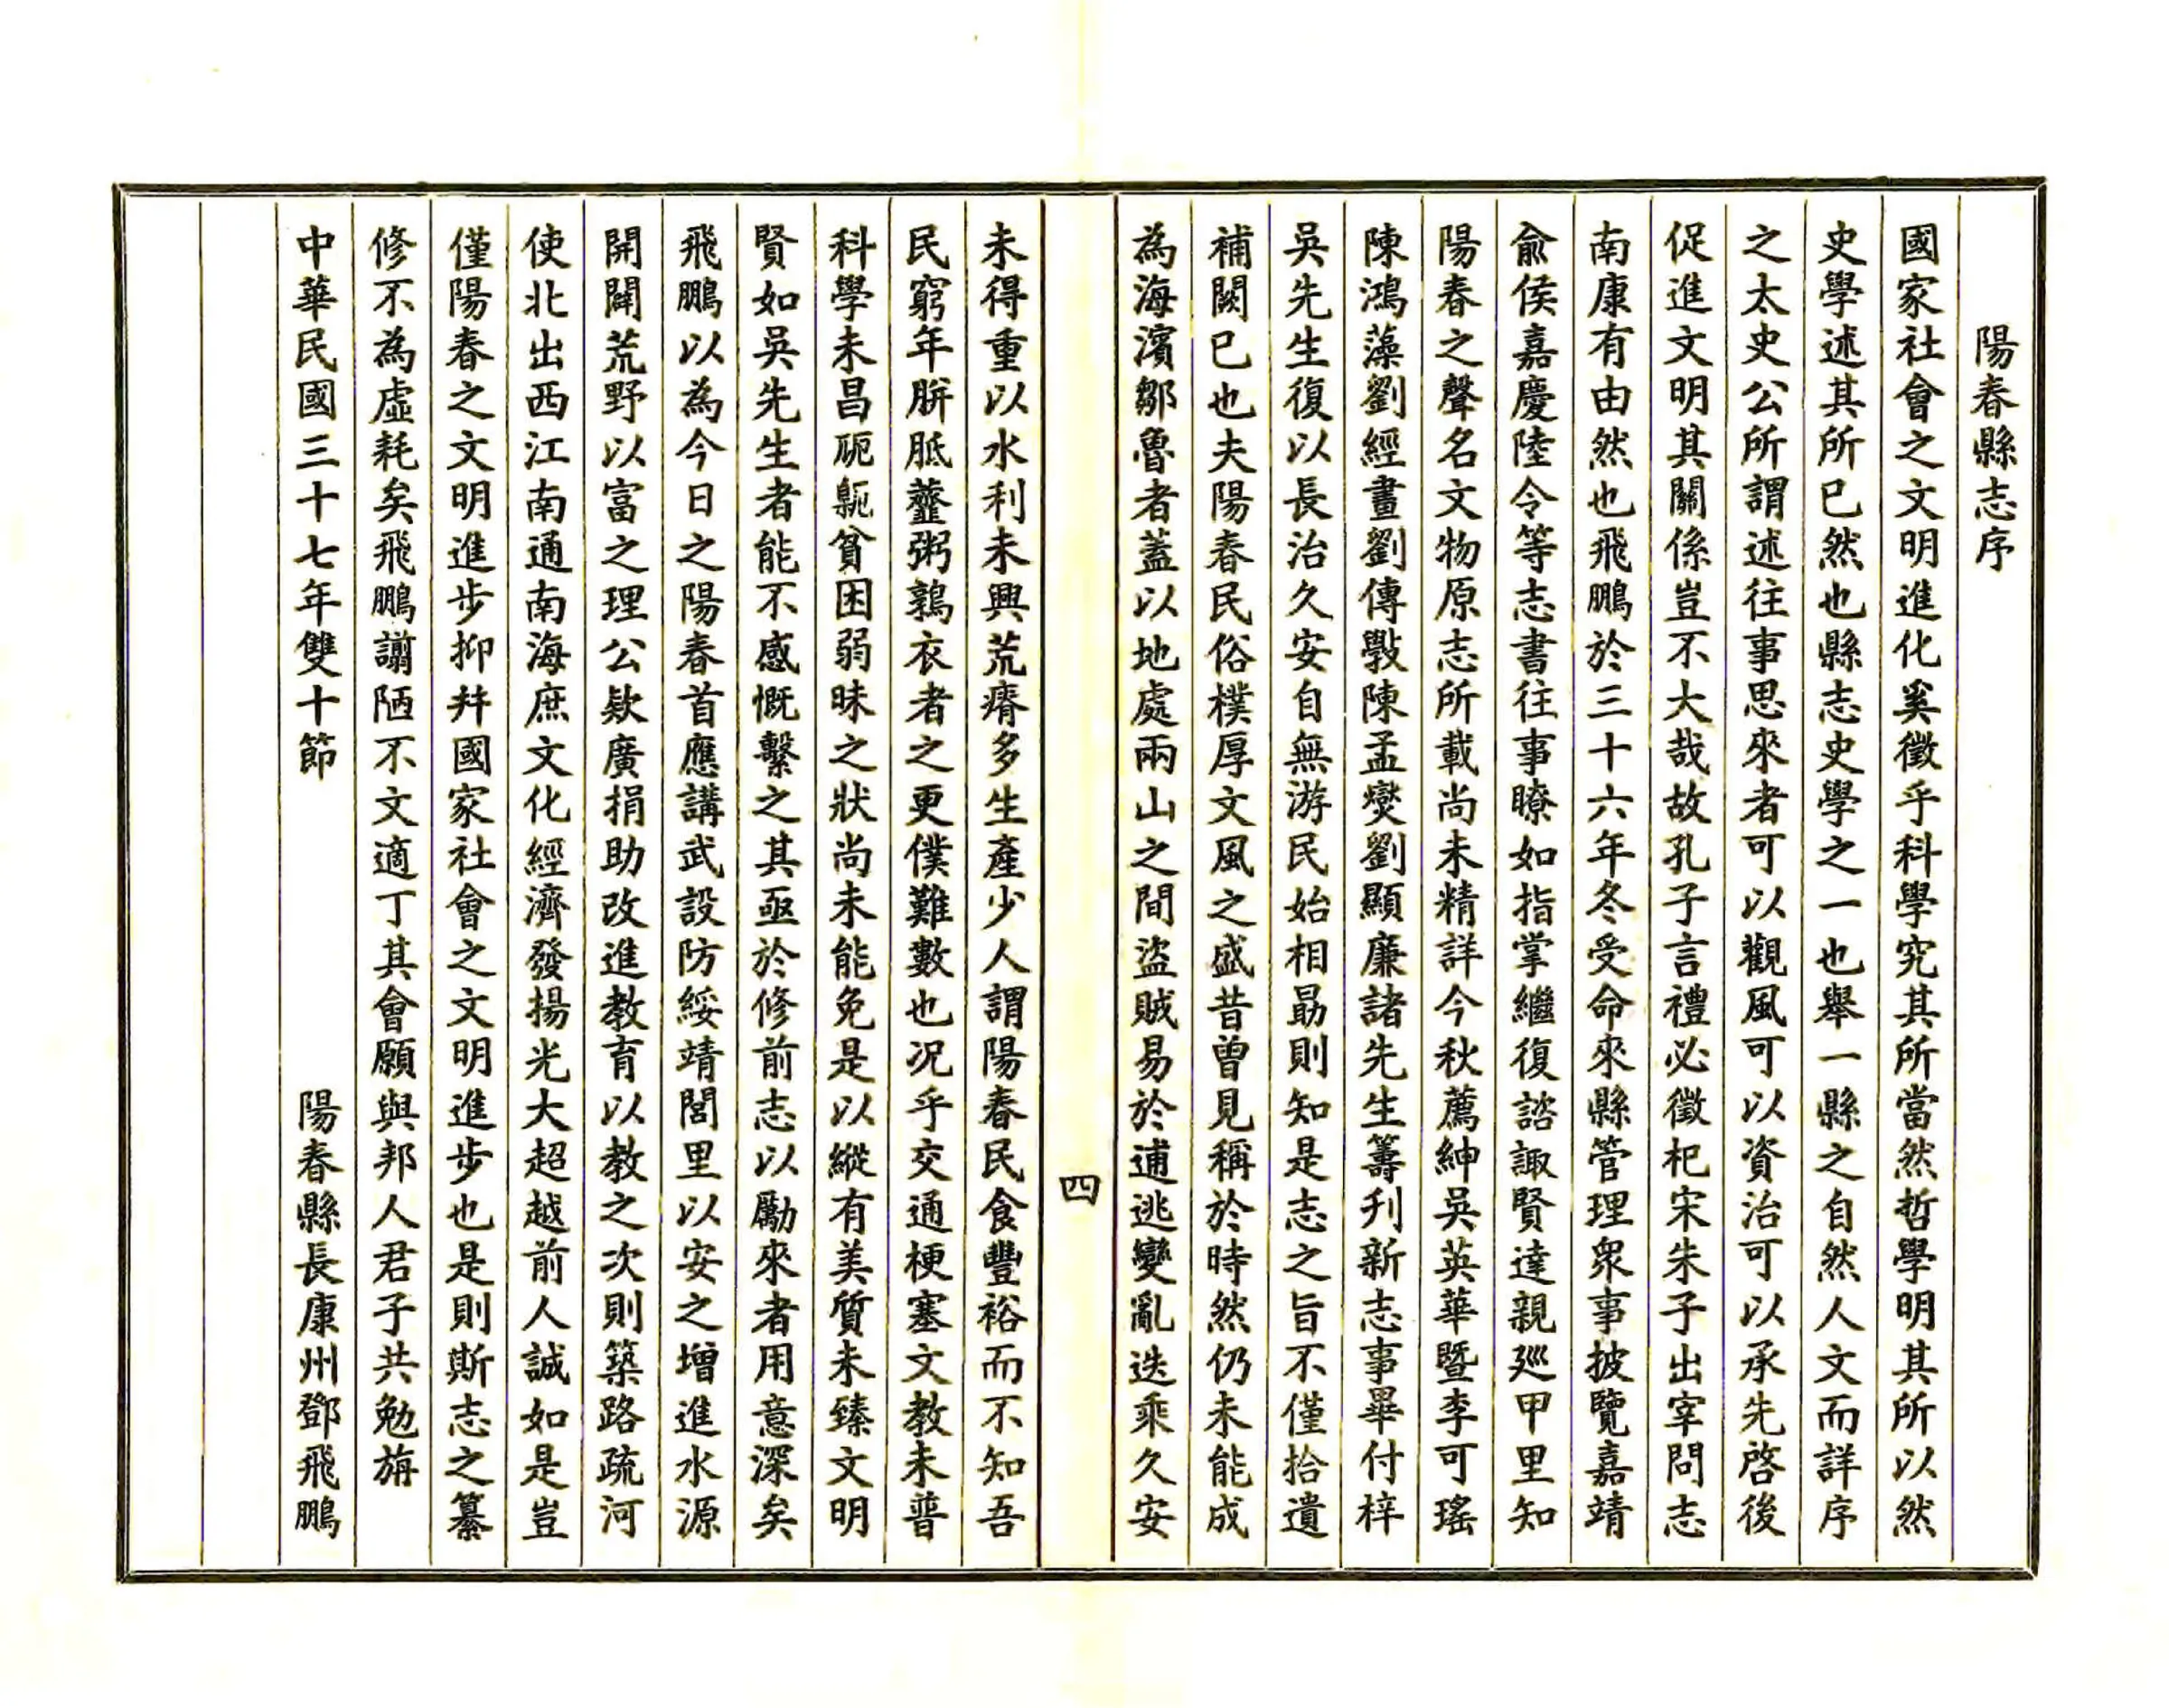 陽春縣志序
國家社會之文明進化奚徵乎科學究其所當然哲學明其所以然
史學述其所已然也縣志史學之一也舉一縣之自然人文而詳序
之太史公所謂述往事思來者可以觀風可以資治可以承先啓後
促進文明其關係豈不大哉故孔子言禮必徵杞宋朱子出宰問志
南康有由然也飛鵬於三十六年冬受命來縣管理衆事披覽嘉靖
俞侯嘉慶陸令等志書往事瞭如指掌繼復諮諏賢達親巡甲里知
陽春之聲名文物原志所載尚未精詳今秋薦紳吳英華暨李可瑤
陳鴻藻劉經畫劉傳斅陳孟爕劉顯廉諸先生籌刋新志事畢付梓
吳先生復以長治久安自無游民始相勗則知是志之旨不僅拾遺
補闕已也夫陽春民俗樸厚文風之盛昔曾見稱於時然仍未能成
為海濱鄒魯者蓋以地處兩山之間盜賊易於逋逃變亂迭乘久安
四
未得重以水利未興荒瘠多生產少人謂陽春民食豐裕而不知吾
民窮年胼胝虀粥鶉衣者之更僕難數也况乎交通梗塞文教未普
科學未昌阨貧困弱昧之狀尚未能免是以縱有美質未臻文明
賢如吳先生者能不感慨繫之其亟於修前志以勵來者用意深矣
飛鵬以為今日之陽春首應講武設防綏靖閭里以安之增進水源
開闢荒野以富之理公欵廣捐助改進教育以教之次則築路疏河
使北出西江南通南海庶文化經濟發揚光大超越前人誠如是豈
僅陽春之文明進步抑幷國家社會之文明進步也是則斯志之纂
修不為虛耗矣飛鵬謭陋不文適丁其會願與邦人君子共勉旃
中華民國三十七年雙十節 陽春縣長康州鄧飛鵬